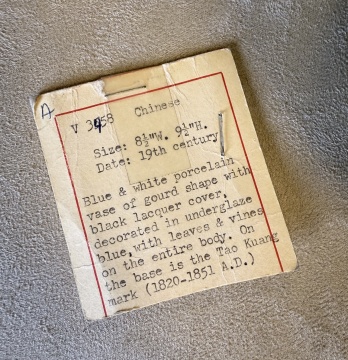 A
V 3458 Chinese
Size: 8½"W. 9½"H.
Date: 19th century
Blue & white porcelain
vase of gourd shape with
black lacquer cover,
decorated in underglaze
blue, with leaves & vines
on the entire body. On
the base is the Tao Kuang
mark (1820-1851 A.D.)